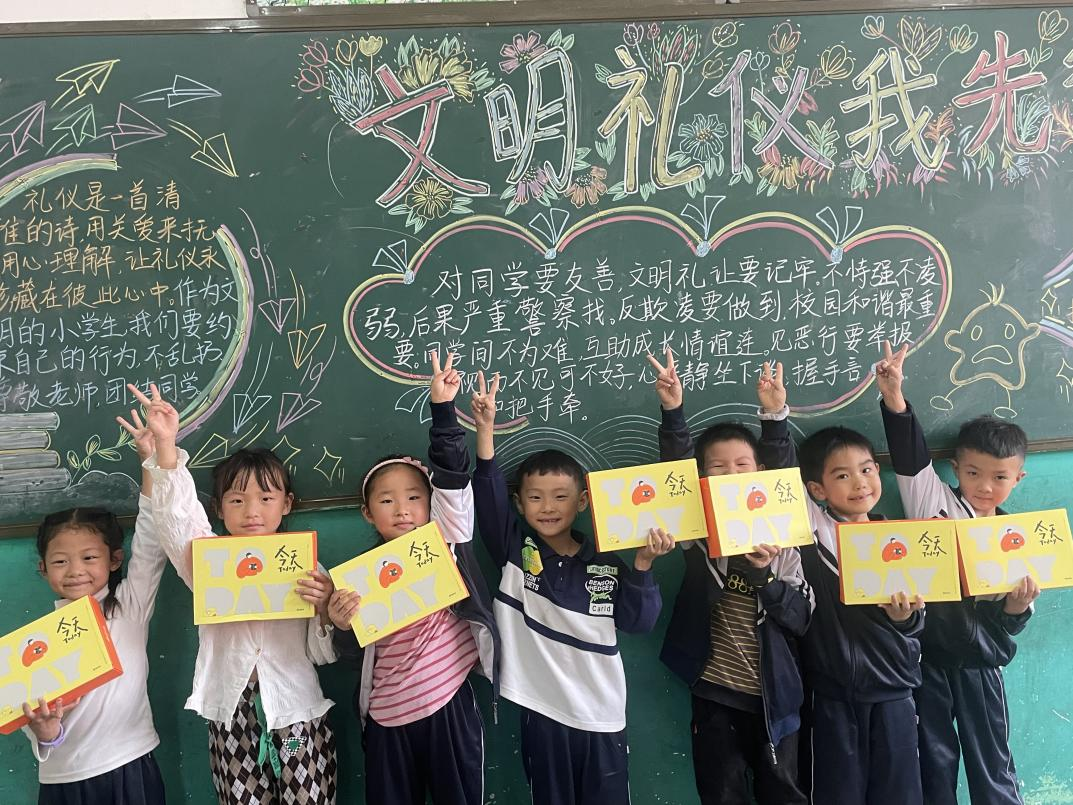 文明礼仪我先
礼仪是一首清
雅的诗,用关爱来抚,
用心,理解,让礼仪永
珍藏在彼此心中。作为文
明的小学生,我们要约
束自己的行为,不乱扔
尊敬老师,团结同学。
对同学要友善,文明礼让要记牢。不恃强不凌
弱,后果严重警察找。反欺凌要做到,校园和谐最重
要。同学间不为难,互助成长情谊连。见恶行要举报,
不见可不好,心平静坐下,握手言
和把手牵。
TODAY 今天 Today
TODAY 今天 Today
TODAY 今天 Today
TODAY 今天 Today
TODAY 今天 Today
TODAY 今天 Today
TODAY 今天 Today
BENSON
HEDGES
Carld